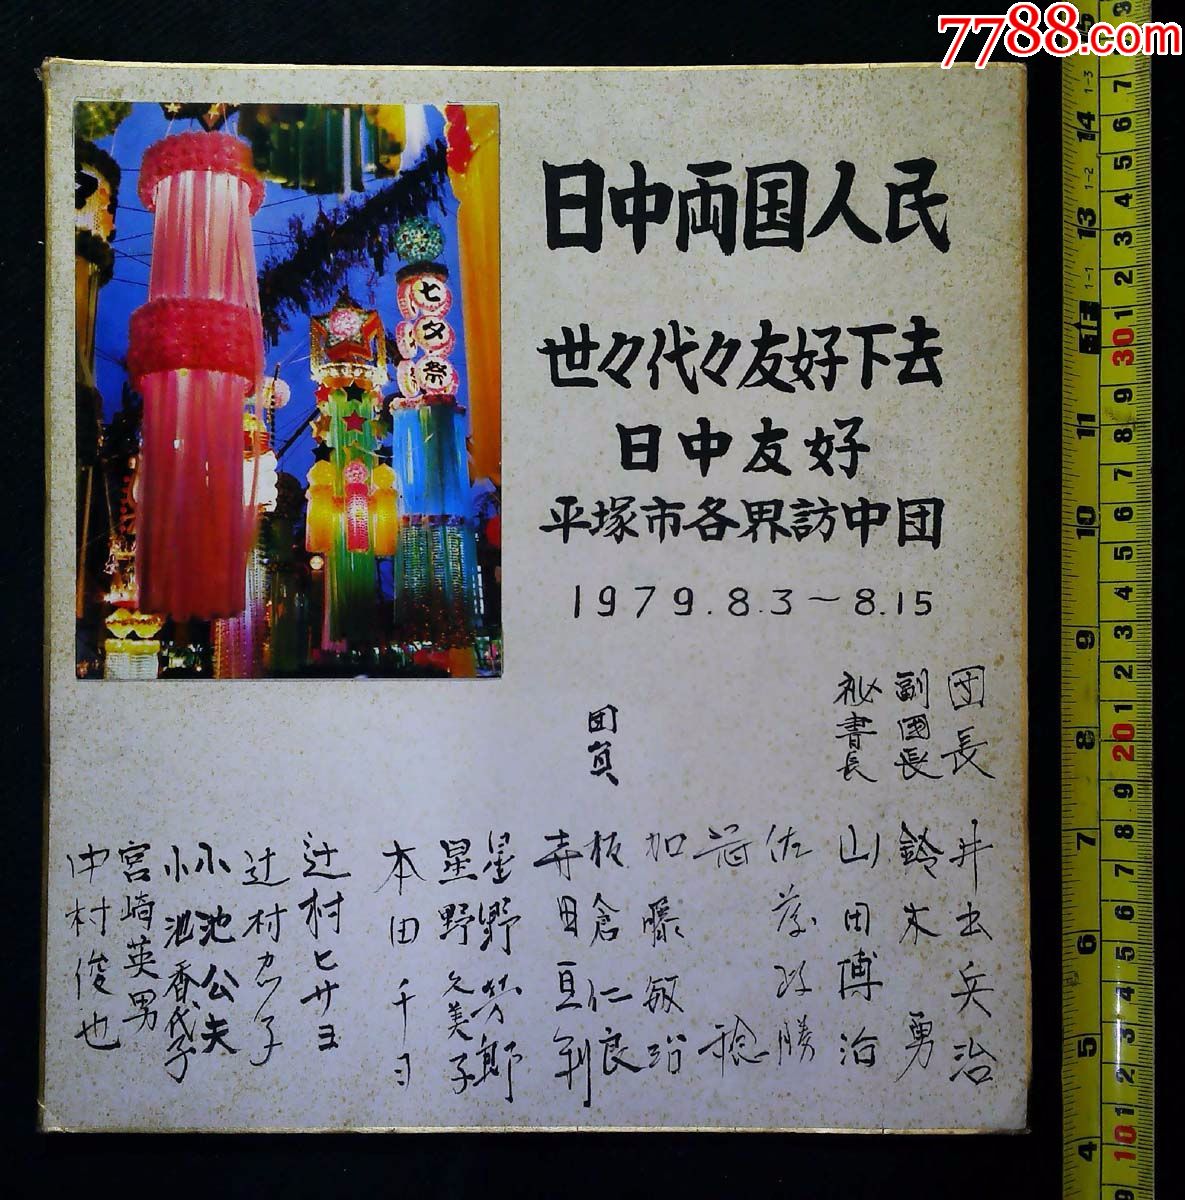 7788.com
七夕祭
日中両国人民
世々代々友好下去
日中友好
平塚市各界訪中団
1979.8.3～8.15
团長
井出兵治
副國長
鈴木勇
秘書長
山田博治
佐藤政勝
加藤敏治
团員
板倉仁良
寺田亘利
星野芳郎
星野久美子
本田千ヨ
辻村ヒサヨ
辻村カツ子
小池公夫
小池香代子
宮崎英男
中村俊也